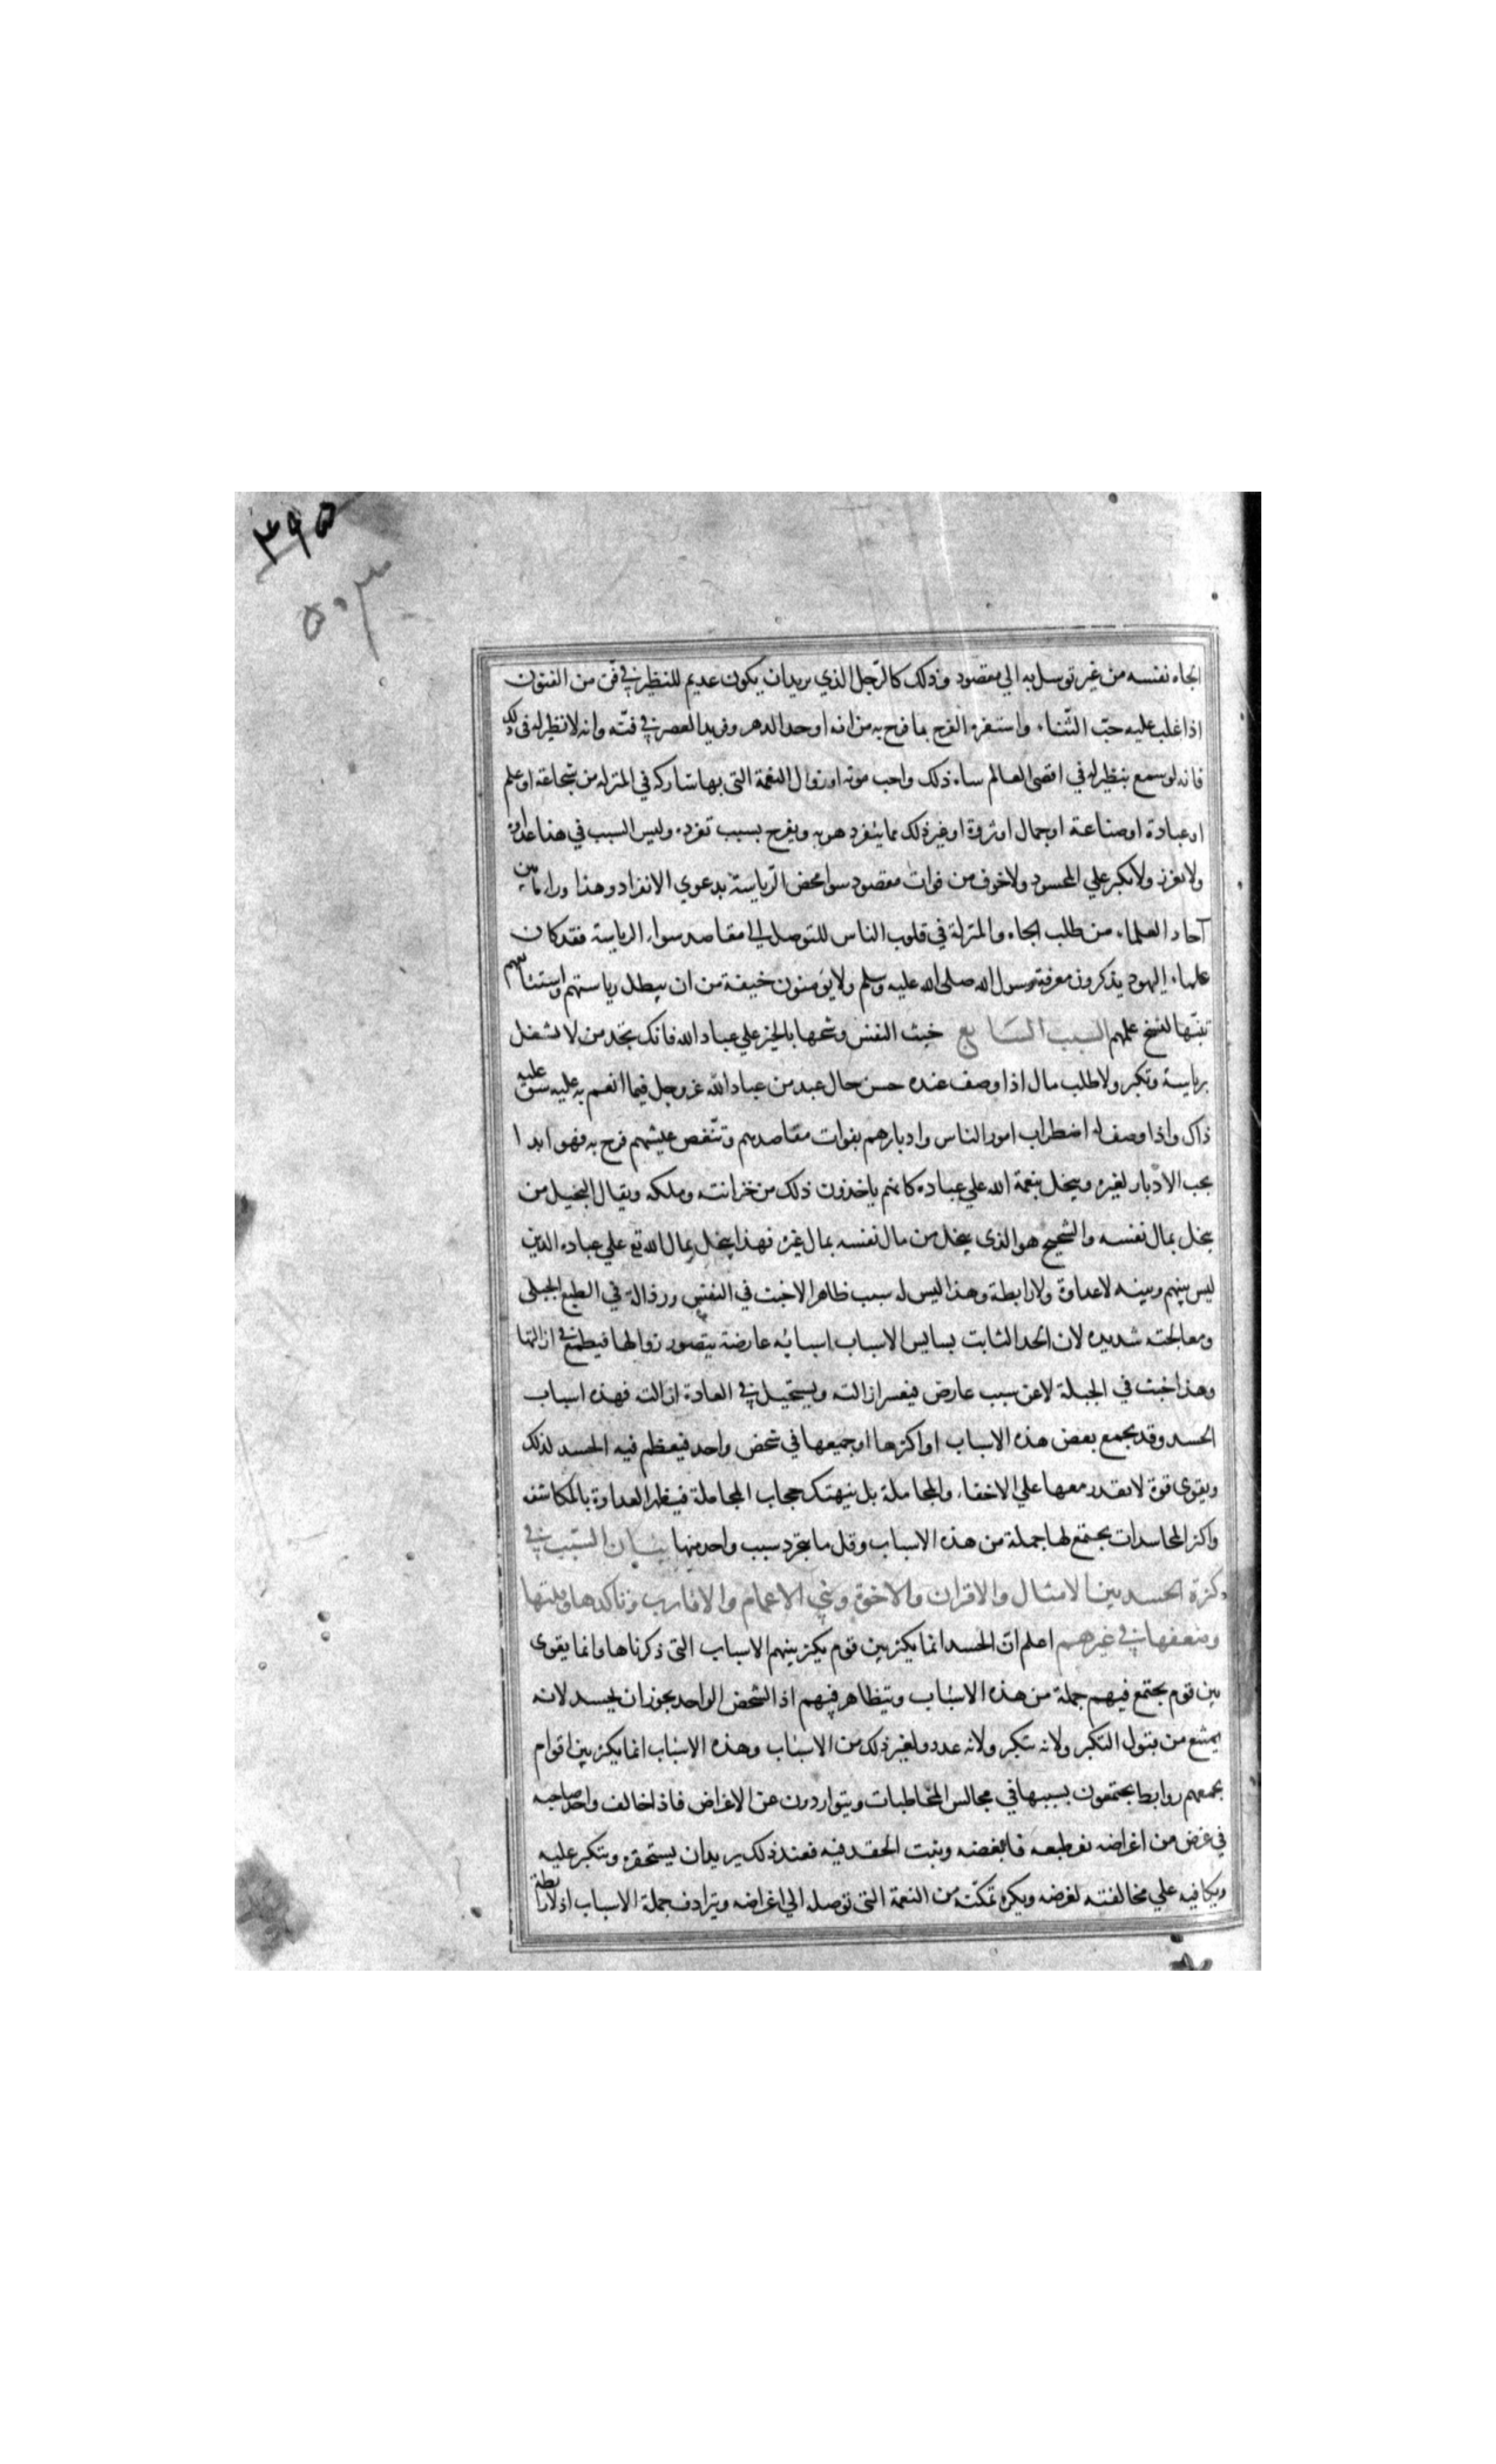 ٣٩٥
٥٠٣
الجاه نفسه من غير توسل به الي مقصود وذلك كالرّجل الذي يريد ان يكون عديم للنظير في فن من الفنون
اذا غلب عليه حبّ الثّناء واستفزه الفرح بما فرح به من انه اوحد الدهر وفريد العصر في فنّه وانه لا نظير له في ذلك
فانه لو سمع بنظير له في اقصى العالم ساءه ذلك واحب موته او زوال النعمة التى بها شاركه في المنزله من شجاعة او علم
او عبادة او صناعة او جمال او ثروة او غير ذلك مما ينفرد هو به ويفرح بسبب تفرده وليس السبب في هذا عداوة
ولا تعزز ولا تكبر علي المحسود ولا خوف من فوات مقصود سوا محض الرّياسة بدعوي الانفراد وهذا وراء ما بين
آحاد العلماء من طلب الجاه والمنزلة في قلوب الناس للتوصل الي مقاصد سواء الرياسة فقد كان
علماء اليهود يذكرون معرفة رسول الله صلى الله عليه وسلم ولا يؤمنون خيفة من ان يبطل رياستهم واستتباعهم
لنسخ علمهم السبب السّابع خبث النفس وشحها بالخير علي عباد الله فانك تجد من لا يشغل
برياسة وتكبر ولا طلب مال اذا وصف عنده حسن حال عبد من عباد الله عز وجل فيما انعم به عليه شق عليه
ذاك واذا وصف له اضطراب امور الناس وادبارهم بفوات مقاصدهم وتنّغص عيشهم فرح به فهو ابدا
يحب الادبار لغيره ويبخل بنعمة الله علي عباده كانهم ياخذون ذلك من خزانته وملكه ويقال البخيل من
يبخل بمال نفسه والشحيح هو الذى يبخل من مال نفسه بمال غيره فهذا يبخل بمال الله تع علي عباده الذين
ليس بينهم وبينه لا عداوة ولا رابطة وهذا ليس له سبب ظاهر الا خبث في النفس ورذالة في الطبع الجبلى
ومعالجته شديده لان الحد الثابت بساير الاسباب اسبابه عارضة يتصور زوالها فيطمع في ازالتها
وهذا خبث في الجبلة لا عن سبب عارض فيعسر ازالته ويستحيل في العادة ازالته فهذه اسباب
الحسد وقد يجمع بعض هذه الاسباب او اكثرها او جميعها في شخص واحد فيعظم فيه الحسد لذلك
ويقوى قوة لا يقدر معها علي الاخفاء والمجاملة بل ينهتك حجاب المجاملة فيظهر العداوة بالمكاشفه
واكثر المحاسدات يجتمع لها جملة من هذه الاسباب وقل ما يتجرد سبب واحد منها بيان السّبب في
كثرة الحسد بين الامثال والاقران والاخوة وبني الاعمام والاقارب وتاكدها وقلتها
وضعفها في غيرهم اعلم انّ الحسد انما يكثر بين قوم يكثر بينهم الاسباب التى ذكرناها وانما يقوى
بين قوم يجتمع فيهم جملة من هذه الاسباب ويتظاهر فيهم اذ الشخص الواحد يجوز ان يحسد لانه
يمتنع من قبول التكبر ولانه يتكبر ولانه عدو ولغير ذلك من الاسباب وهذه الاسباب انما يكثر بين اقوام
يجمعهم روابط يجتمعون بسببها في مجالس المخاطبات ويتواردون عن الاغراض فاذا خالف واحد صاحبه
في غرض من اغراضه نفر طبعه فابغضه وينبت الحقد فيه فعند ذلك يريد ان يستحقره ويتكبر عليه
ويكافيه علي مخالفته لغرضه ويكره تمكنّه من النعمة التى توصله الي اغراضه ويترادف جملة الاسباب اذ لا رابطة